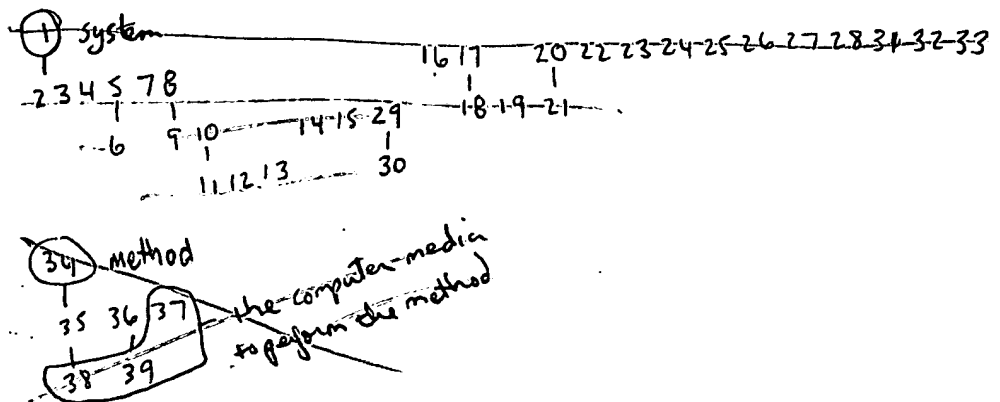 1 system
16 17 20 22 23 24 25 26 27 28 31 32 33
2 3 4 5 7 8
18 19 21
6 9 10 14 15 29
11 12 13 30
34 method
35 36 37
the computer-media
to perform the method
38 39